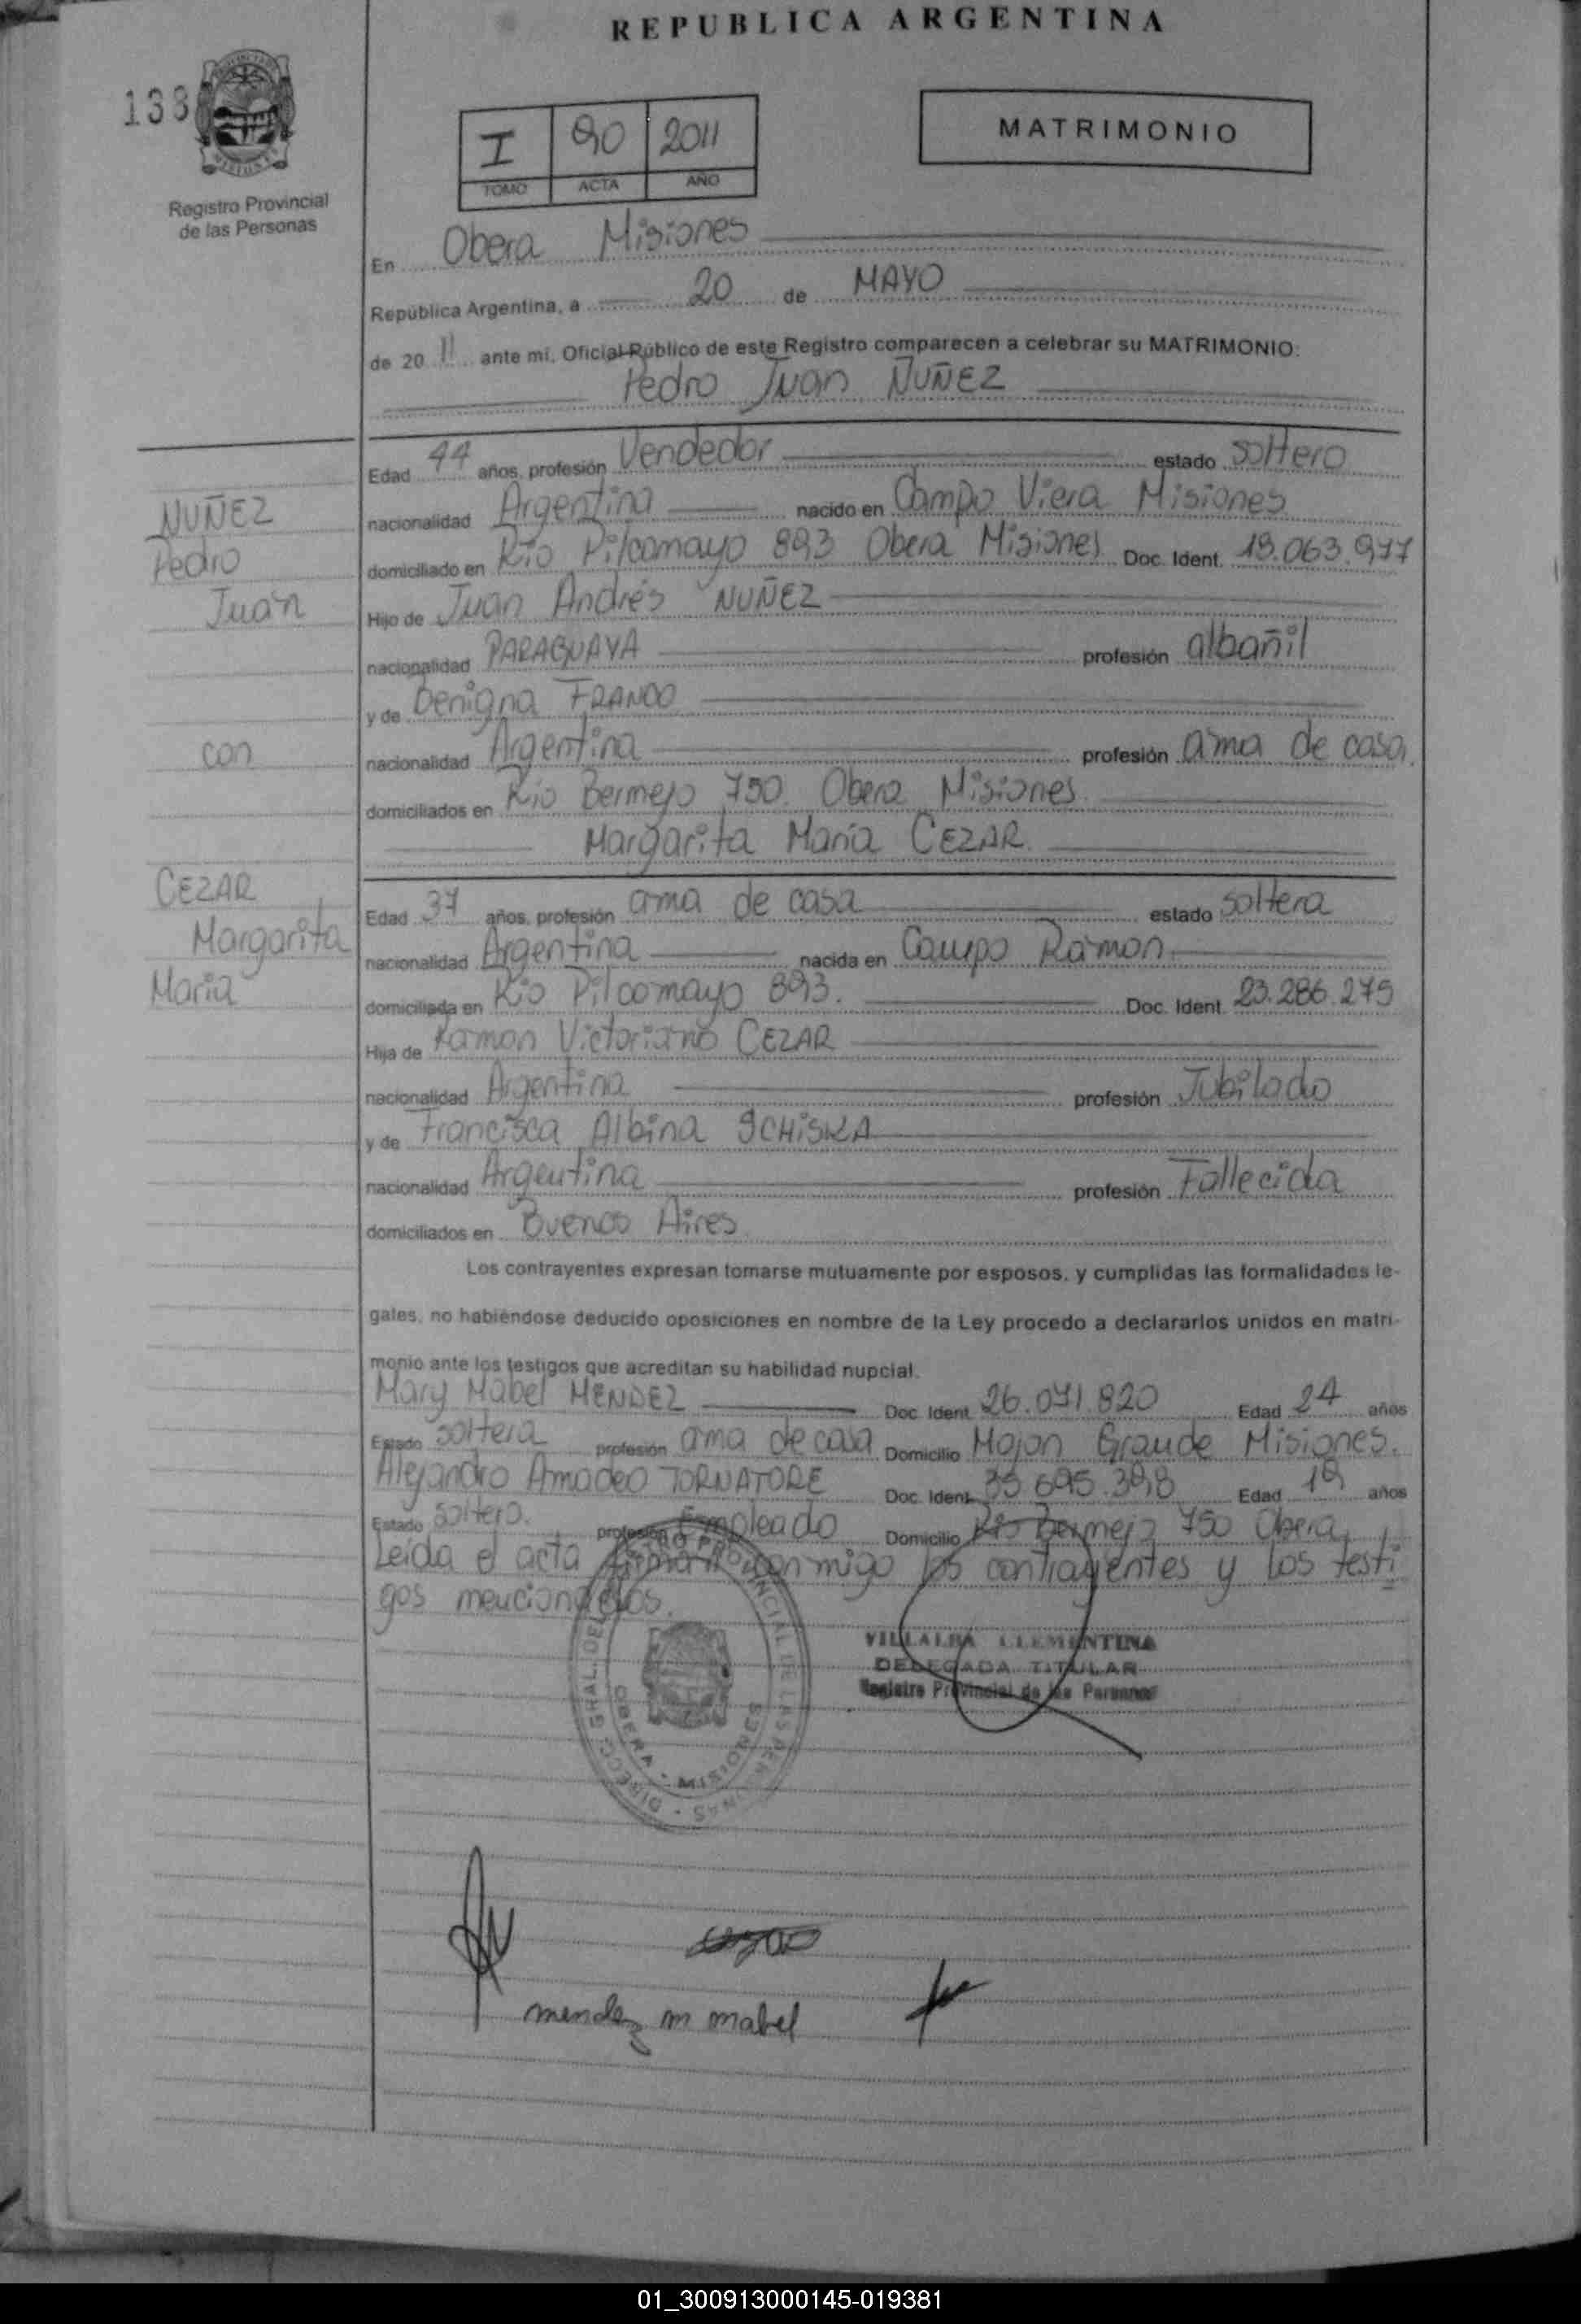 REPUBLICA ARGENTINA
138
Registro Provincial
de las Personas
I 90 2011
TOMO ACTA AÑO
MATRIMONIO
En Obera Misiones
República Argentina, a 20 de MAYO
de 20 11 ante mí, Oficial Público de este Registro comparecen a celebrar su MATRIMONIO:
Pedro Juan NUÑEZ
Edad 44 años, profesión Vendedor estado soltero
NUÑEZ
Pedro
Juan
nacionalidad Argentina nacido en Campo Viera Misiones
domiciliado en Río Pilcomayo 893 Obera Misiones Doc. Ident. 18.063.977
Hijo de Juan Andrés NUÑEZ
nacionalidad PARAGUAYA profesión albañil
y de Benigna FRANCO
con
nacionalidad Argentina profesión ama de casa,
domiciliados en Río Bermejo 750. Obera Misiones
Margarita María CEZAR.
CEZAR
Margarita
María
Edad 37 años, profesión ama de casa estado soltera
nacionalidad Argentina nacida en Campo Ramon
domiciliada en Río Pilcomayo 893. Doc. Ident. 23.286.275
Hija de Ramon Victoriano CEZAR
nacionalidad Argentina profesión Jubilado
y de Francisca Albina SCHISKA
nacionalidad Argentina profesión Fallecida
domiciliados en Buenos Aires
Los contrayentes expresan tomarse mutuamente por esposos, y cumplidas las formalidades le-
gales, no habiéndose deducido oposiciones en nombre de la Ley procedo a declararlos unidos en matri-
monio ante los testigos que acreditan su habilidad nupcial.
Mary Mabel MENDEZ Doc. Ident. 26.071.820 Edad 24 años
Estado soltera profesión ama de casa Domicilio Mojon Grande Misiones.
Alejandro Amadeo TORNATORE Doc. Ident. 35.695.398 Edad 19 años
Estado soltero. profesión Empleado Domicilio Río Bermejo 750 Obera,
Leida el acta firman conmigo los contrayentes y los testi
gos mencionados.
VILLALBA CLEMENTINA
DELEGADA TITULAR
Registro Provincial de las Personas
DIRECC. GRAL. DEL REGISTRO PROVINCIAL DE LAS PERSONAS
OBERA - MISIONES
mendez m mabel
01_300913000145-019381